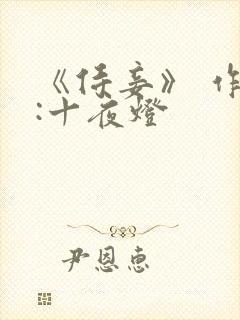 《侍妾》 作
:十夜燈
尹恩惠